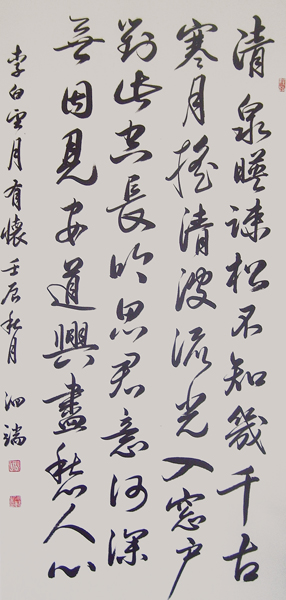 清泉暎疎松不知幾千古
寒月搖清波流光入窓户
對此空長吟思君意何深
無因見安道興盡愁人心
李白望月有懷 壬辰秋月 泗